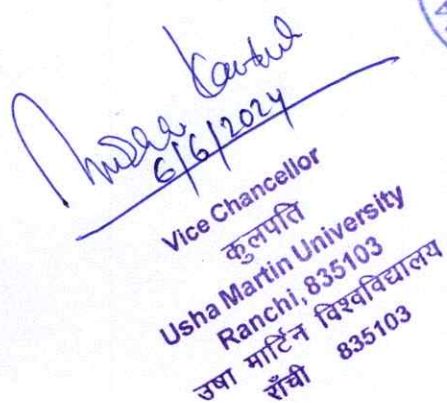 6/6/2024
Vice Chancellor
कुलपति
Usha Martin University
Ranchi, 835103
उषा मार्टिन विश्वविद्यालय
राँची 835103